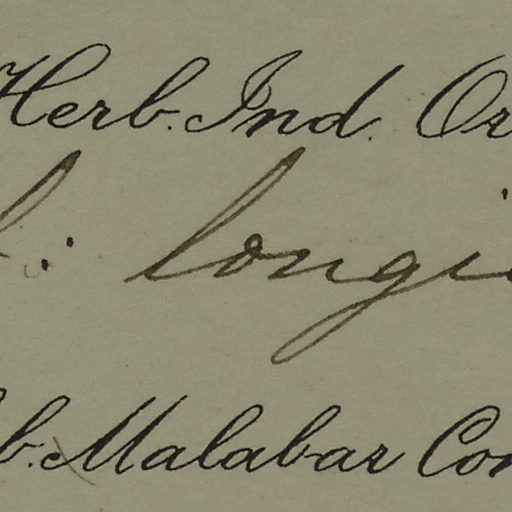 Herb. Ind. Or
f: longi
b. Malabar Con